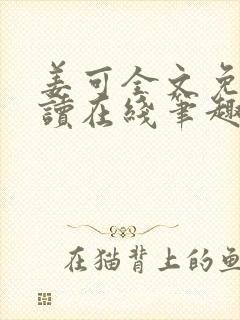 姜可全文免
讀在綫筆趣
在猫背上的鱼